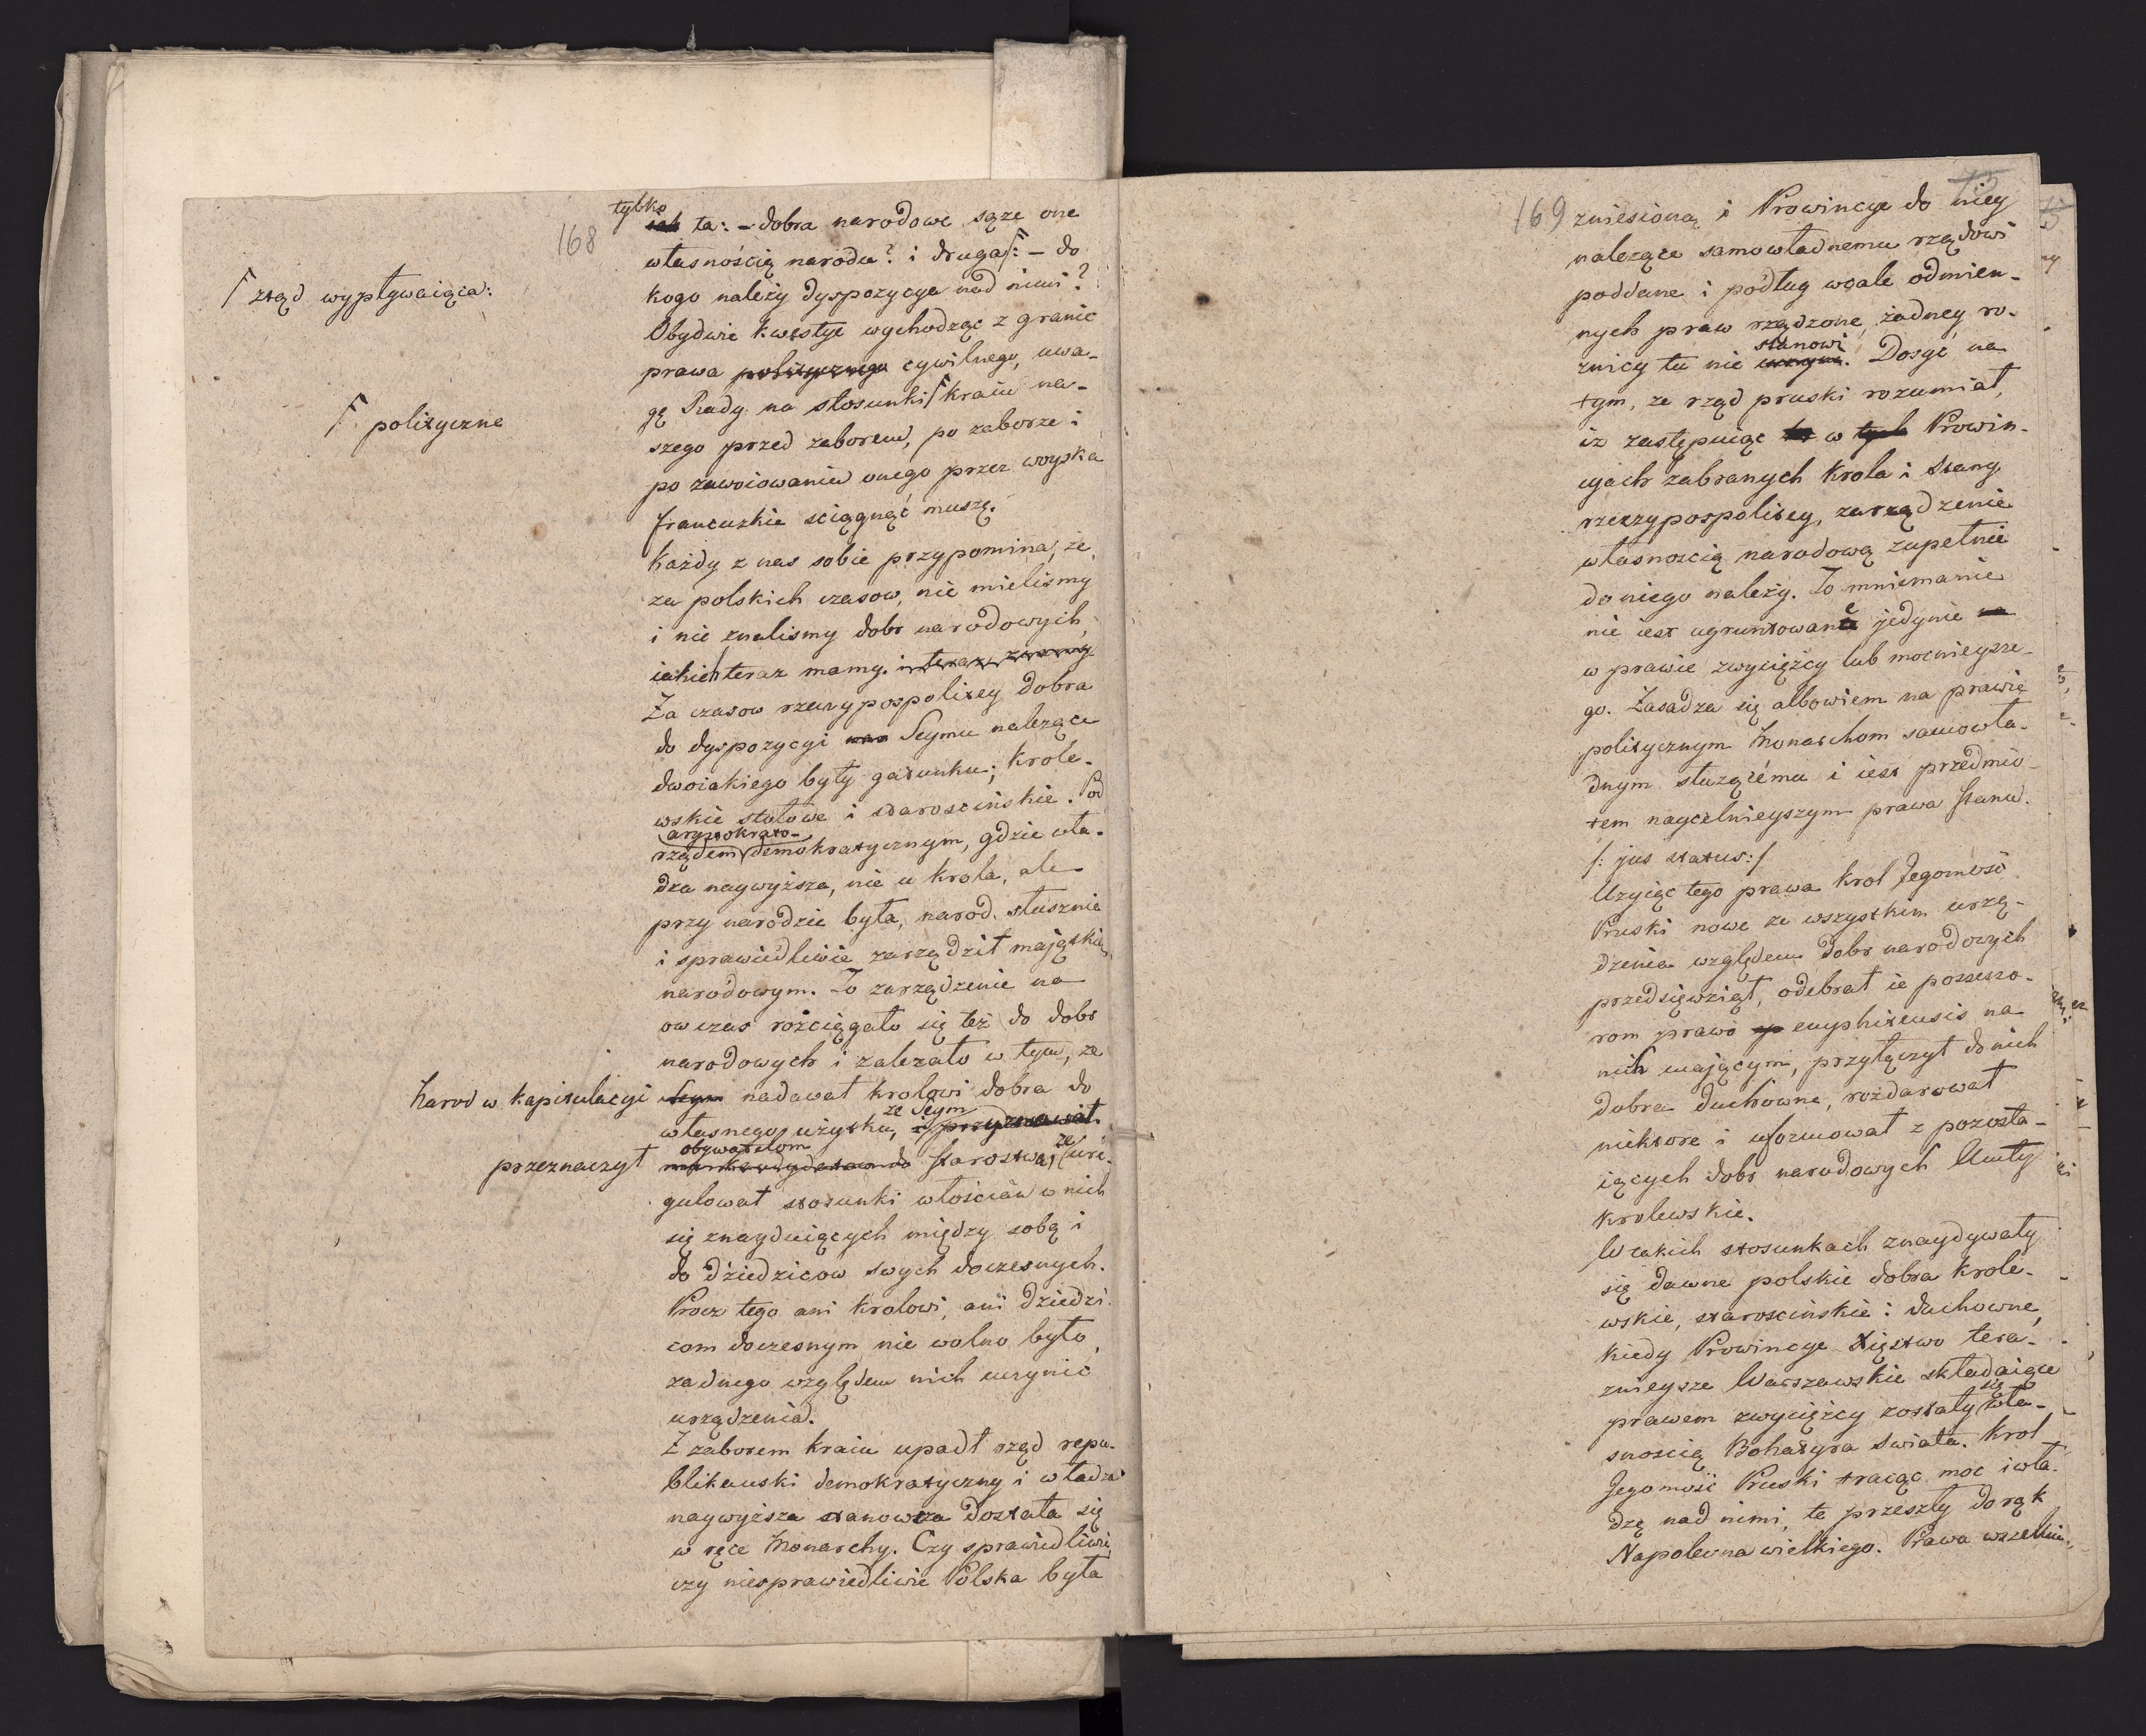 168
tylko
iak ta: - dobra narodowe sąze one
własnością narodu? i druga/: - do
/ ztąd wypływaiąca:
kogo należy dyspozycya nad nimi?
Obydwie kwestye wychodząc z granic
prawa politycznego cywilnego, uwa-
gę Rady na stosunki / kraiu na-
/ polityczne
szego przed zaborem, po zaborze i
po zawoiowaniu onego przez woyska
francuzkie sciągnąć muszę.
Każdy z nas sobie przypomina, ze
za polskich czasow, nie mielismy
i nie znalismy dobr narodowych,
iakich teraz mamy. i teraz znamy
Za czasow rzeczypospolitey dobra
do dyspozycyi Seymu nalezące
dwoiakiego były gatunku; krole-
wskie stołowe i staroscinskie. Pod
arystokrato-
rządem demokratycznym, gdzie wła-
dza naywyższa, nie u krola, ale
przy narodzie była, narod słusznie
i sprawiedliwie zarządził maiątkiem
narodowym. To zarządzenie na
owczas rościągało się też do dobr
narodowych i zalezało w tym, ze
Narod w kapitulacyi Seym nadawał krolowi dobra do
ze Seym
własnego użytku, przyznawał
obywatelom
przeznaczył starostwa, ze / ure-
gulował stosunki włościan w nich
się znayduiących między sobą i
do dziedzicow swych doczesnych.
Procz tego ani krolowi, ani dziedzi-
com doczesnym nie wolno było,
zadnego względem nich uczynic
urządzenia.
Z zaborem kraiu upadł rząd repu-
blikanski demokratyczny i władza
naywyższa stanowcza dostała się
w ręce Monarchy. Czy sprawiedliwie,
czy niesprawiedliwie Polska była
169
zniesioną i Prowincye do niey
nalezące samowładnemu rządowi
poddane i podług wcale odmien-
nych praw rządzone, żadney ro-
stanowi
znicy tu nie czyni. Dosyc na
tym, ze rząd pruski rozumiał,
iz zastępuiąc w tych Prowin-
cyach zabranych Krola i Stany
rzeczypospolitey, zarządzenie
własnoscią narodową zupełnie
do niego należy. To mniemanie
nie iest ugruntowane jedynie na
w prawie zwyciężcy lub mocnieysze-
go. Zasadza się albowiem na prawie
politycznym Monarchom samowła-
dnym służącému i iest przedmio-
tem naycelnieyszym prawa stanu.
/: jus status :/
Uzyiąc tego prawa krol Jegomość
Pruski nowe ze wszystkim urzą-
dzenia względem dobr narodowych
przedsięwziął, odebrał ie possesso-
rom prawo emphiteusis na
nich maiącym, przyłączył do nich
dobra duchowne, rozdarował
niektore i uformował z pozosta-
iących dobr narodowych Amty
krolewskie.
W takich stosunkach znaydywały
się dawne polskie dobra krole-
wskie, staroscinskie i duchowne,
kiedy Prowincye Xięstwo tera-
znieysze Warszawskie składaiące
się
prawem zwyciężcy zostały wła-
snoscią Bohatyra swiata. Krol
Jegomość Pruski tracąc moc i wła-
dzę nad nimi, te przeszły do rąk
Napoleona wielkiego. Prawa wszelkie,